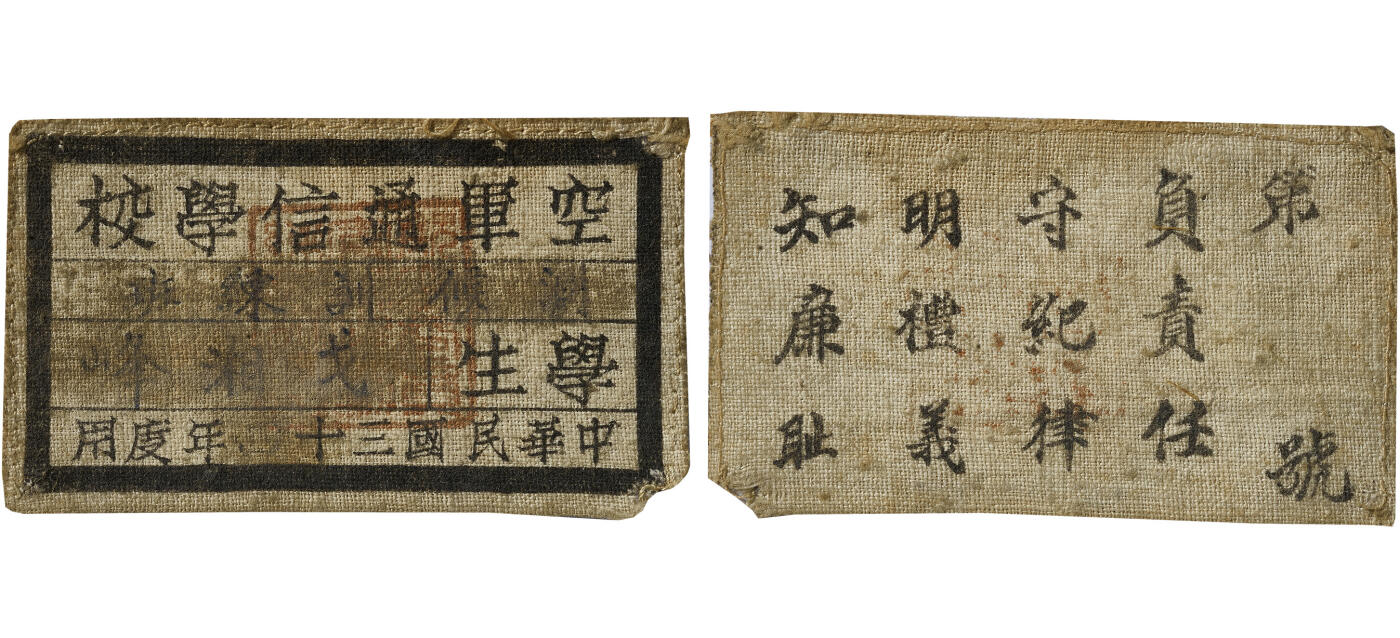 空軍通信學校
測候訓練班
學生 戈湘峰
中華民國三十 年度用
第 號
負責任
守紀律
明禮義
知廉耻